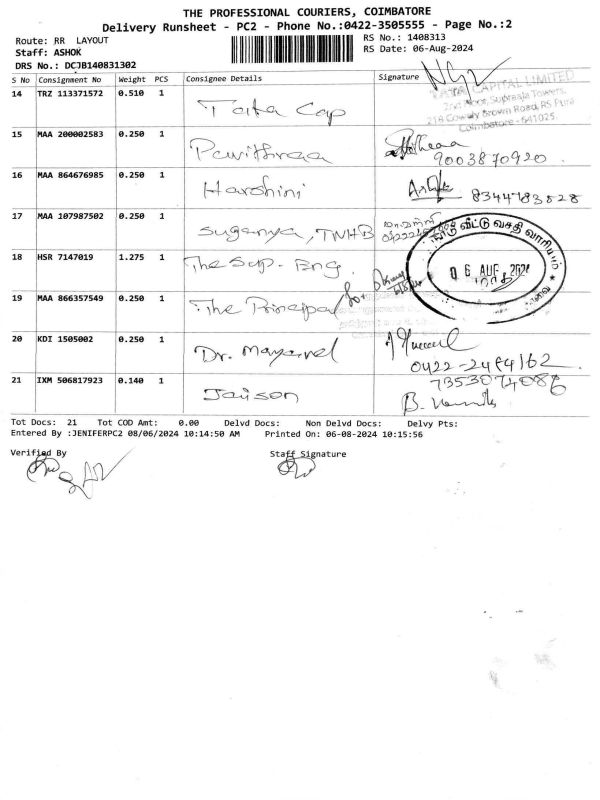 THE PROFESSIONAL COURIERS, COIMBATORE
Delivery Runsheet - PC2 - Phone No.:0422-3505555 - Page No.:2
Route: RR LAYOUT
RS No.: 1408313
Staff: ASHOK
RS Date: 06-Aug-2024
DRS No.: DCJB140831302
S No Consignment No Weight PCS Consignee Details Signature
14 TRZ 113371572 0.510 1 Tata Cap
TATA CAPITAL LIMITED
2nd Floor, Supraaja Towers,
218 Cowley Brown Road, RS Pura
Coimbatore - 641025.
15 MAA 200002583 0.250 1 Pavithraa
9003870920
16 MAA 864676985 0.250 1 Harshini
8344783828
17 MAA 107987502 0.250 1 Suganya, TNHB
வீட்டு வசதி வாரியம்
18 HSR 7147019 1.275 1 The Sup. Eng.
06 AUG 2024
19 MAA 866357549 0.250 1 The Principal
20 KDI 1505002 0.250 1 Dr. Mayavel
0422-2494162
21 IXM 506817923 0.140 1 Jaison
7353074086
Tot Docs: 21 Tot COD Amt: 0.00 Delvd Docs: Non Delvd Docs: Delvy Pts:
Entered By :JENIFERPC2 08/06/2024 10:14:50 AM Printed On: 06-08-2024 10:15:56
Verified By Staff Signature